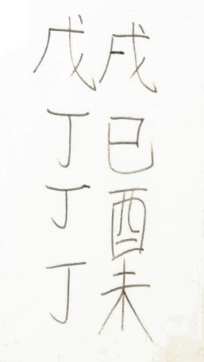 戊戌
丁巳
丁酉
丁未